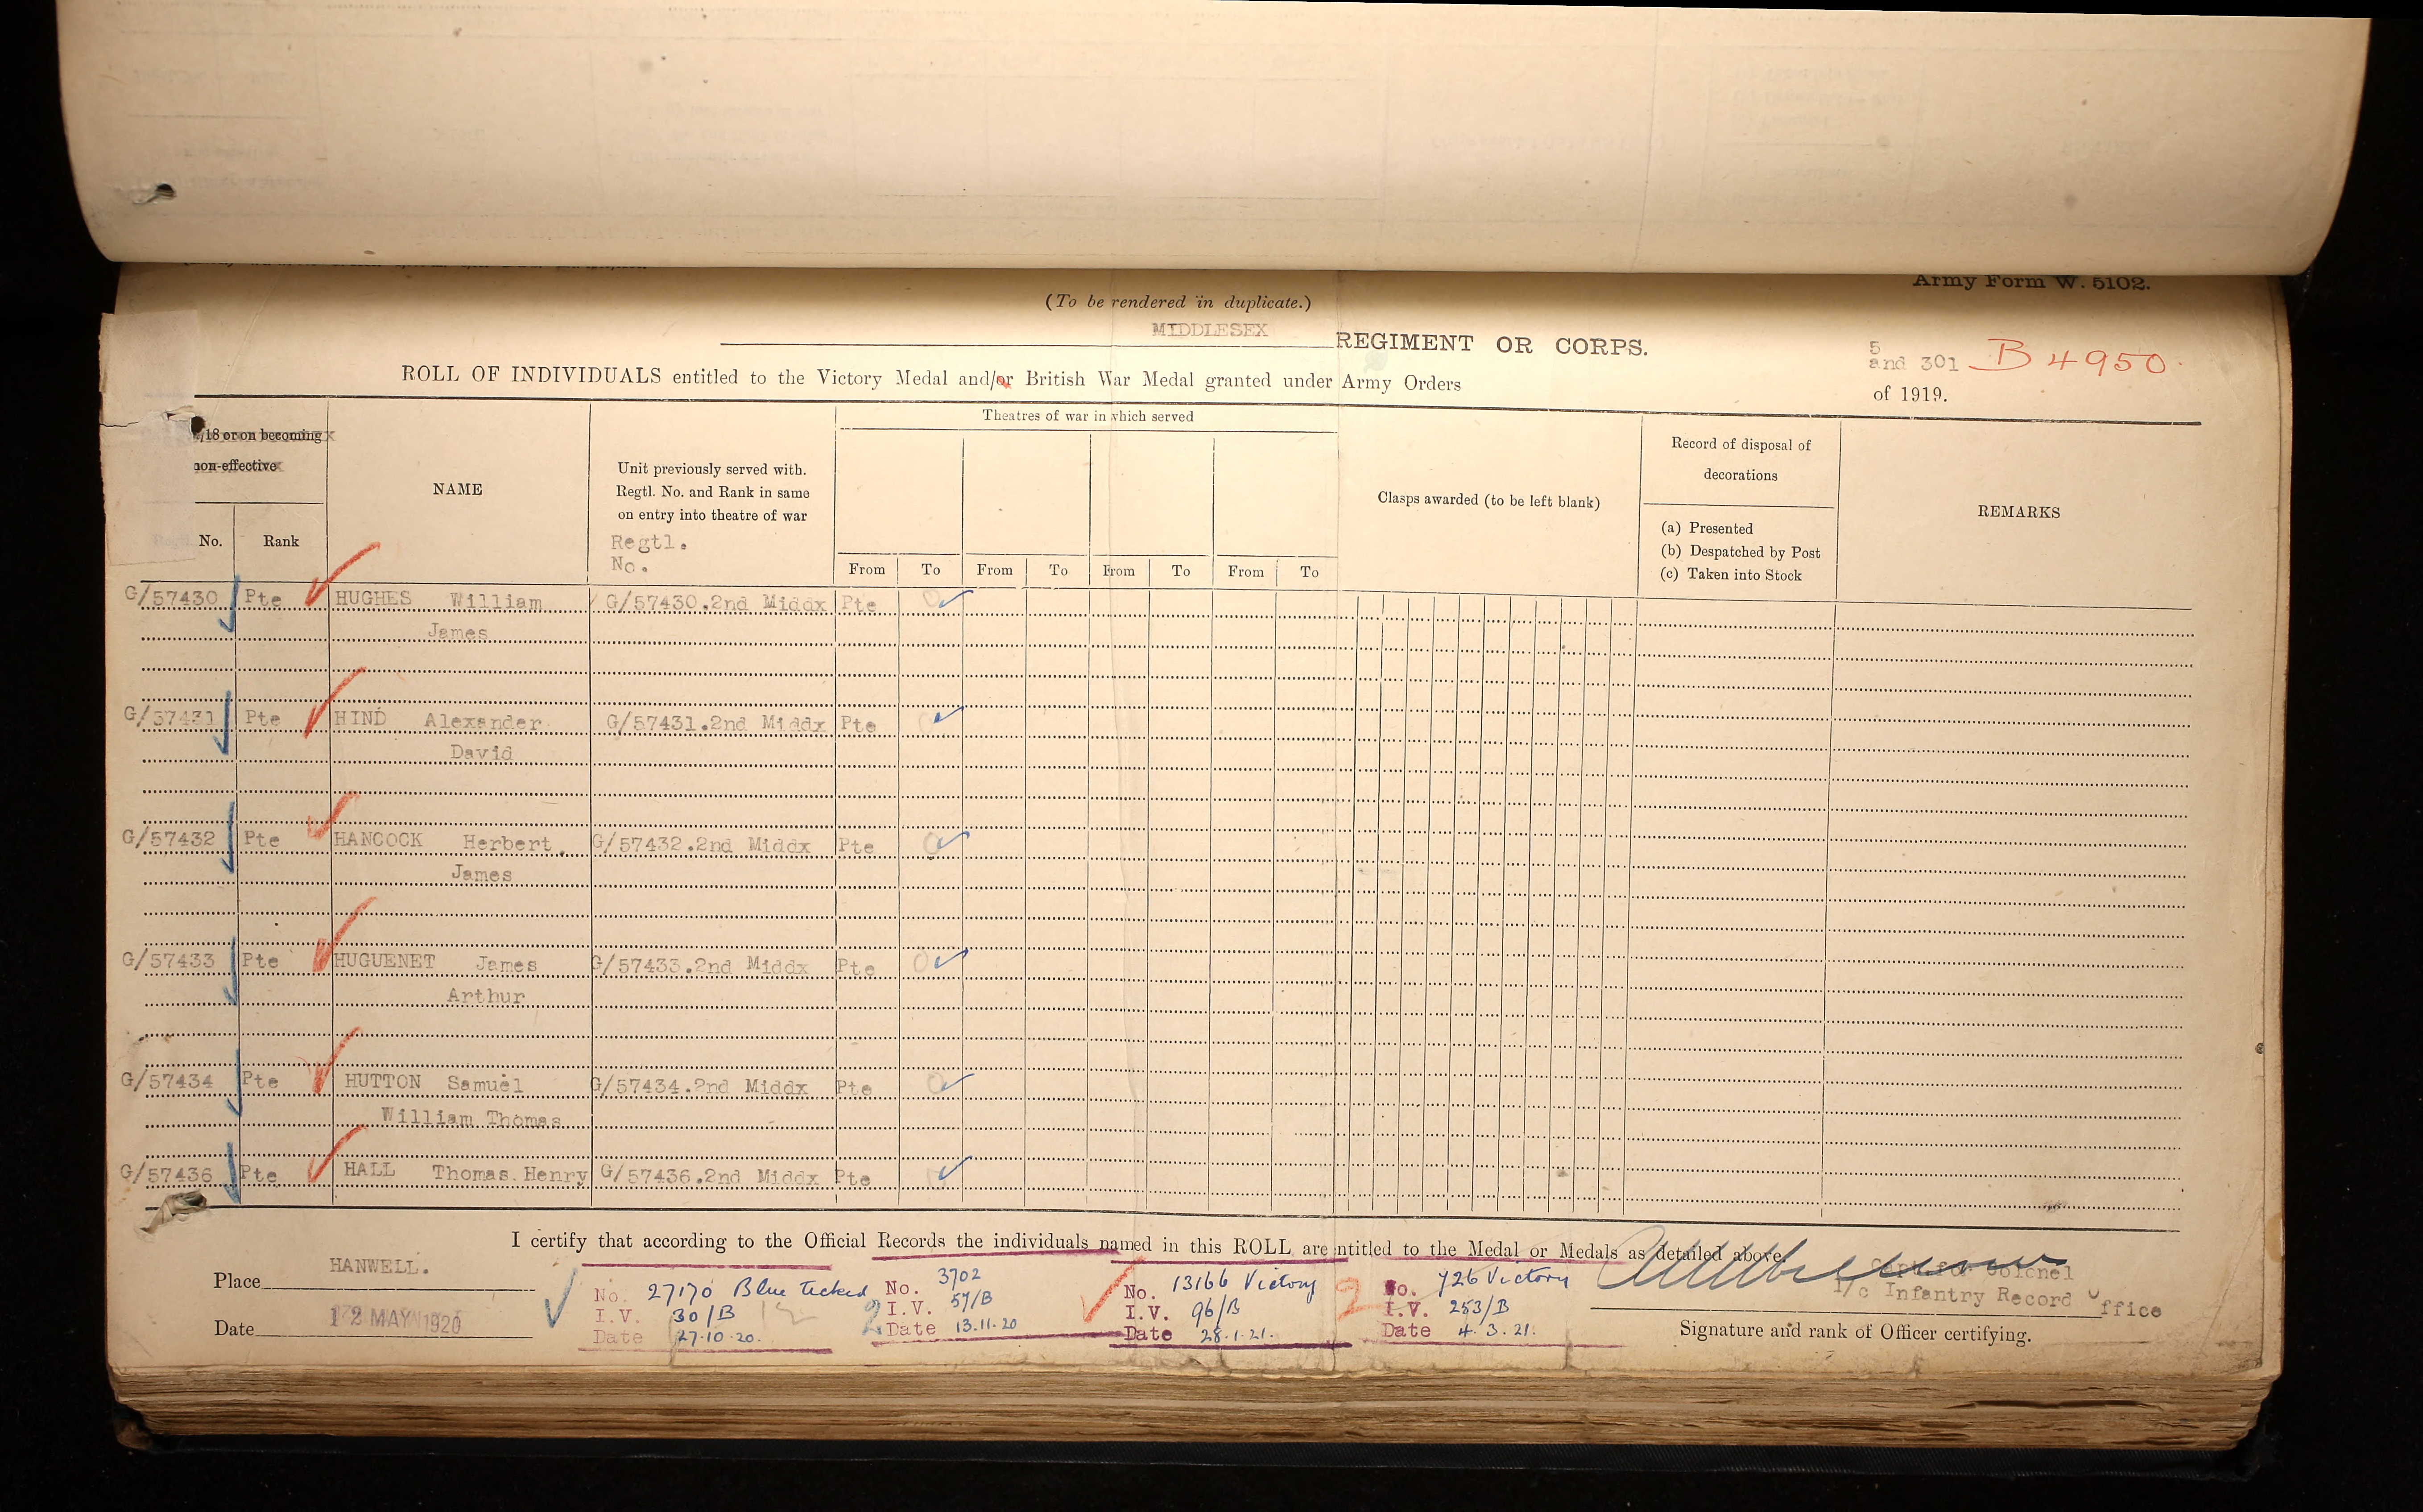 Army Form W. 5102.
(To be rendered in duplicate.)
MIDDLESEX REGIMENT OR CORPS.
ROLL OF INDIVIDUALS entitled to the Victory Medal and/or British War Medal granted under Army Orders
5
and 301 B 4950.
of 1919.
/18 or on becoming
non-effective
No.
Rank
NAME
Unit previously served with.
Regtl. No. and Rank in same
on entry into theatre of war
Regtl.
No.
Theatres of war in which served
From To From To From To From To
Clasps awarded (to be left blank)
Record of disposal of
decorations
(a) Presented
(b) Despatched by Post
(c) Taken into Stock
REMARKS
G/57430 Pte HUGHES William G/57430.2nd Middx Pte
James
G/57431 Pte HIND Alexander G/57431.2nd Middx Pte
David
G/57432 Pte HANCOCK Herbert. G/57432.2nd Middx Pte
James
G/57433 Pte HUGUENET James G/57433.2nd Middx Pte
Arthur
G/57434 Pte HUTTON Samuel G/57434.2nd Middx Pte
William Thomas
G/57436 Pte HALL Thomas Henry G/57436.2nd Middx Pte
I certify that according to the Official Records the individuals named in this ROLL are entitled to the Medal or Medals as detailed above
Place HANWELL.
Date 12 MAY 1920
No. 27170 Blue ticked
I.V. 30/B
Date 27.10.20.
No. 3702
I.V. 57/B
Date 13.11.20
No. 13166 Victory
I.V. 96/B
Date 28.1.21.
2
No. 726 Victory
I.V. 253/B
Date 4.3.21.
Capt for Colonel
I/c Infantry Record Office
Signature and rank of Officer certifying.